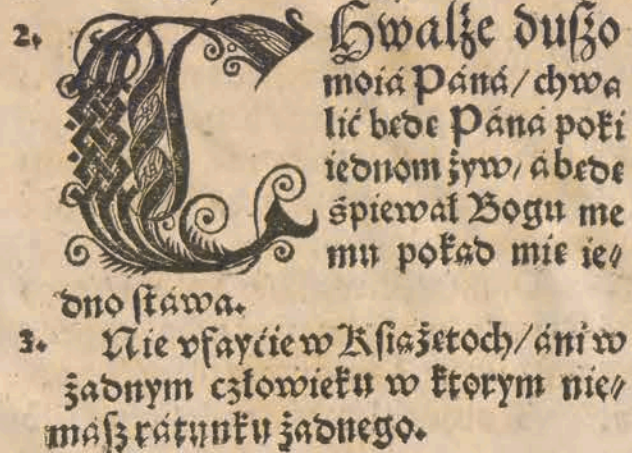 2. CHwalże duſzo
moiá Páná/chwa
lić bede Páná poki
iednom żyw/ á bede
śpiewał Bogu me
mu pokad mie ie⸗
dno ſtáwa.
3. Nie vfayćie w Kſiążetoch/áni w
żadnym człowieku w ktorym nie⸗
máſz rátunku żadnego.